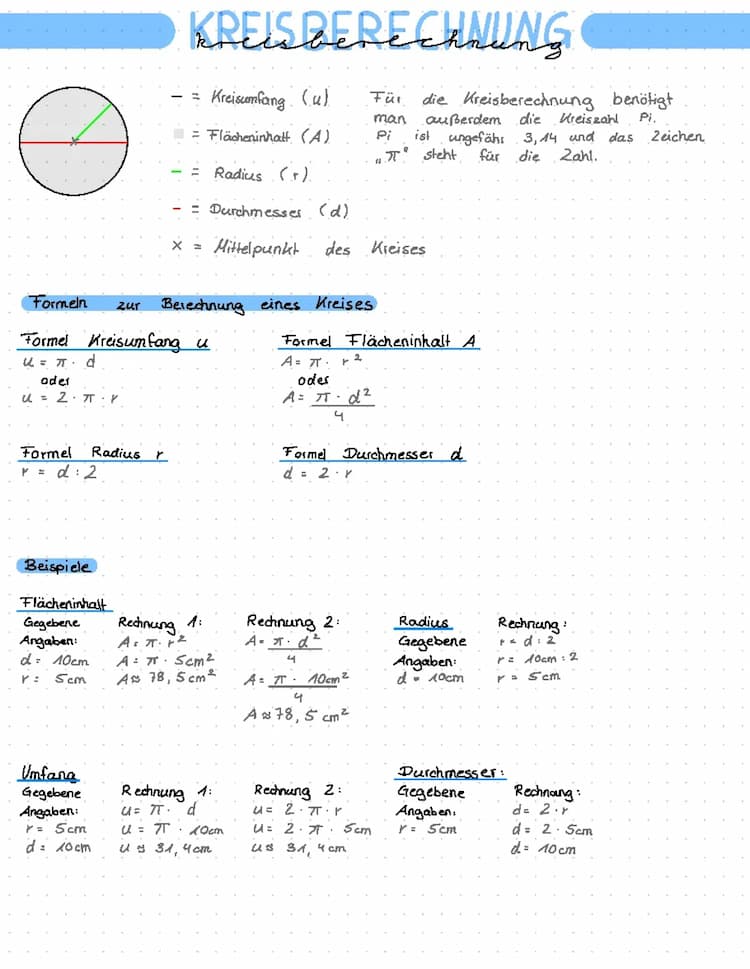 KREISBERECHNUNG
kreisberechnung
— = Kreisumfang (u)
= Flächeninhalt (A)
— = Radius (r)
- = Durchmesser (d)
x = Mittelpunkt des Kreises
Für die Kreisberechnung benötigt
man außerdem die Kreiszahl Pi.
Pi ist ungefähr 3,14 und das Zeichen
„π" steht für die Zahl.
Formeln zur Berechnung eines Kreises
Formel Kreisumfang u
u = π · d
oder
u = 2 · π · r
Formel Flächeninhalt A
A = π · r²
oder
A = π · d²
4
Formel Radius r
r = d : 2
Formel Durchmesser d
d = 2 · r
Beispiele
Flächeninhalt
Gegebene
Angaben:
d = 10cm
r = 5cm
Rechnung 1:
A = π · r²
A = π · 5cm²
A ≈ 78,5cm²
Rechnung 2:
A = π · d²
4
A = π · 10cm²
4
A ≈ 78,5 cm²
Radius
Gegebene
Angaben:
d = 10cm
Rechnung:
r = d : 2
r = 10cm : 2
r = 5cm
Umfang
Gegebene
Angaben:
r = 5cm
d = 10cm
Rechnung 1:
u = π · d
u = π · 10cm
u ≈ 31,4cm
Rechnung 2:
u = 2 · π · r
u = 2 · π · 5cm
u ≈ 31,4cm
Durchmesser:
Gegebene
Angaben:
r = 5cm
Rechnung:
d = 2 · r
d = 2 · 5cm
d = 10cm